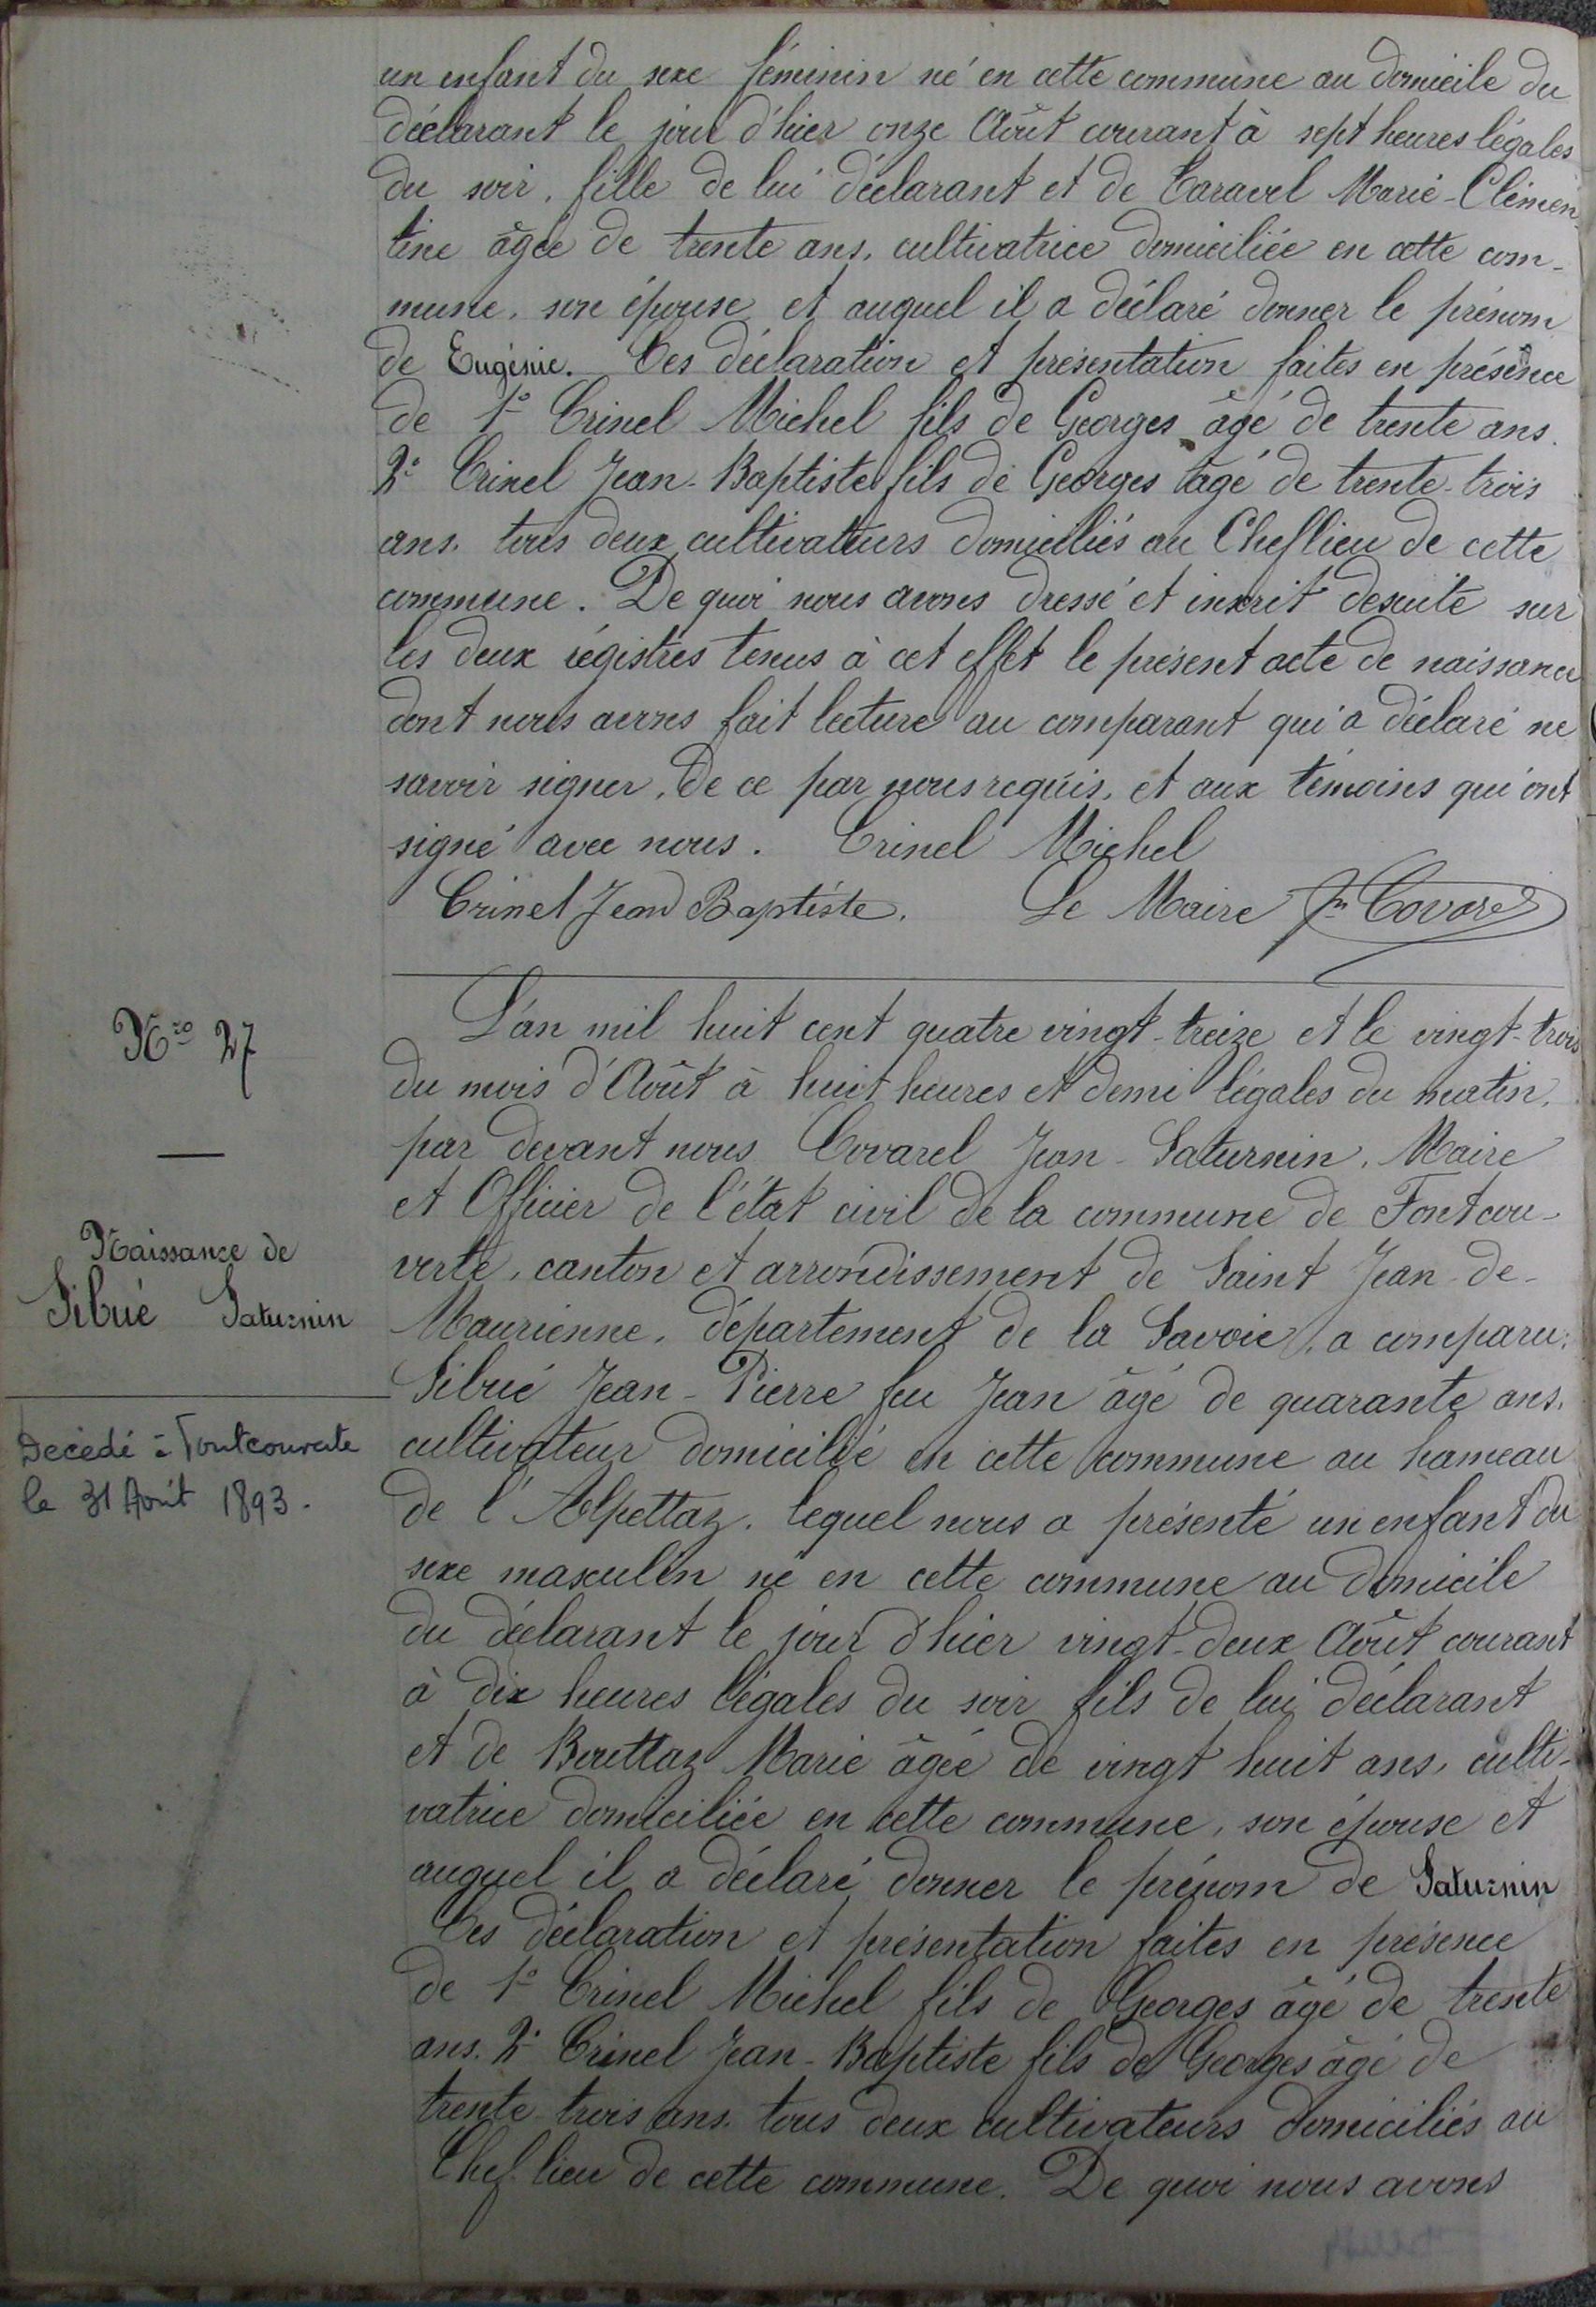 un enfant du sexe féminin né en cette commune au domicile du
déclarant le jour d'hier onze Août courant à sept heures légales
du soir, fille de lui déclarant et de Caravel Marie-Clémen-
tine âgée de trente ans, cultivatrice domiciliée en cette com-
mune, son épouse et auquel il a déclaré donner le prénom
de Eugénie. Ces déclaration et présentation faites en présence
de 1° Crinel Michel fils de Georges âgé de trente ans.
2° Crinel Jean-Baptiste fils de Georges âgé de trente-trois
ans, tous deux cultivateurs domiciliés au Cheflieu de cette
commune. De quoi nous avons dressé et inscrit desuite sur
les deux régistres tenus à cet effet le présent acte de naissance
dont nous avons fait lecture au comparant qui a déclaré ne
savoir signer, de ce par nous requis, et aux témoins qui ont
signé avec nous. Crinel Michel
Crinel Jean Baptiste. Le Maire Jn Covarel
Nro 27
Naissance de
Sibué Saturnin
Décédé à Fontcouverte
le 31 Août 1893.
L'an mil huit cent quatre vingt-treize et le vingt-trois
du mois d'Août à huit heures et demi légales du matin,
par devant nous Covarel Jean-Saturnin, Maire
et Officier de l'état civil de la commune de Fontcou-
verte, canton et arrondissement de Saint Jean-de-
Maurienne, département de la Savoie, a comparu:
Sibué Jean-Pierre feu Jean âgé de quarante ans,
cultivateur domicilié en cette commune au hameau
de l'Alpettaz, lequel nous a présenté un enfant du
sexe masculin né en cette commune au domicile
du déclarant le jour d'hier vingt-deux Août courant
à dix heures légales du soir fils de lui déclarant
et de Bouttaz Marie âgée de vingt huit ans, culti-
vatrice domiciliée en cette commune, son épouse et
auquel il a déclaré donner le prénom de Saturnin
Ces déclaration et présentation faites en présence
de 1° Crinel Michel fils de Georges âgé de trente
ans. 2° Crinel Jean-Baptiste fils de Georges âgé de
trente trois ans, tous deux cultivateurs domiciliés au
Chef-lieu de cette commune. De quoi nous avons